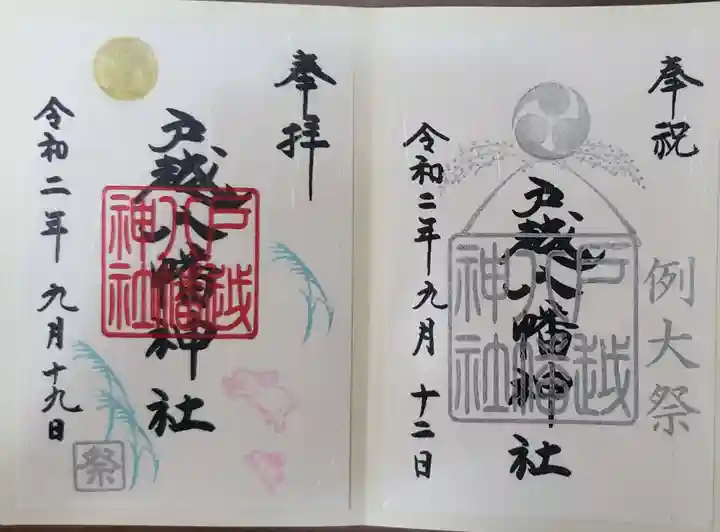 奉祝
戸越八幡神社
戸越八幡神社
例大祭
令和二年九月十二日
奉拝
戸越八幡神社
戸越八幡神社
令和二年九月十九日
祭